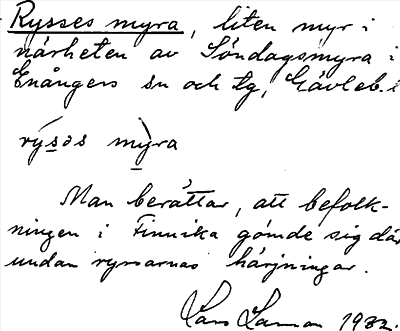 Rysses myra, liten myr i
närheten av Söndagsmyra i
Enångers sn och tg, Gävleb. l
rýsəs mỳ̠ra
Man berättar, att befolk-
ningen i Finnika gömde sig där
undan ryssarnas härjningar.
Lars 1932.